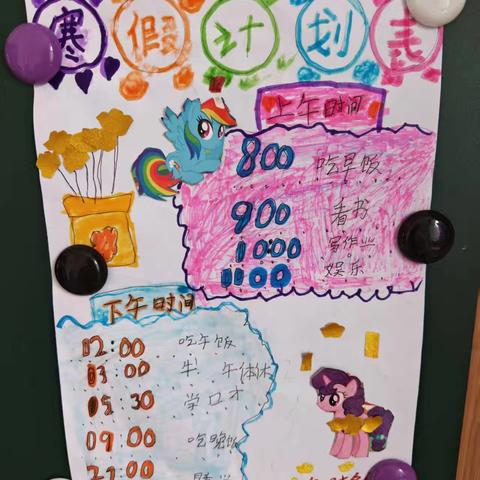 寒假计划表
上午时间
8:00 吃早饭
9:00 看书
10:00 写作业
11:00 娱乐
下午时间
12:00 吃午饭
13:00 午休
15:30 学口才
吃晚饭